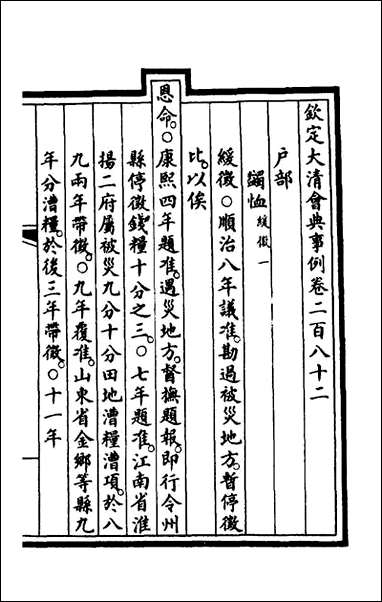 欽定大清會典事例卷二百八十二
戶部
蠲恤緩徵一
緩徵〇順治八年議准。勘過被災地方。暫停徵
比。以俟
恩命。〇康熙四年題准。遇災地方。督撫題報。即行令州
縣停徵錢糧十分之三。〇七年題准。江南省淮
揚二府屬被災九分十分田地漕糧漕項。於八
九兩年帶徵。〇九年覆准。山東省金鄉等縣九
年分漕糧。於後三年帶徵。〇十一年